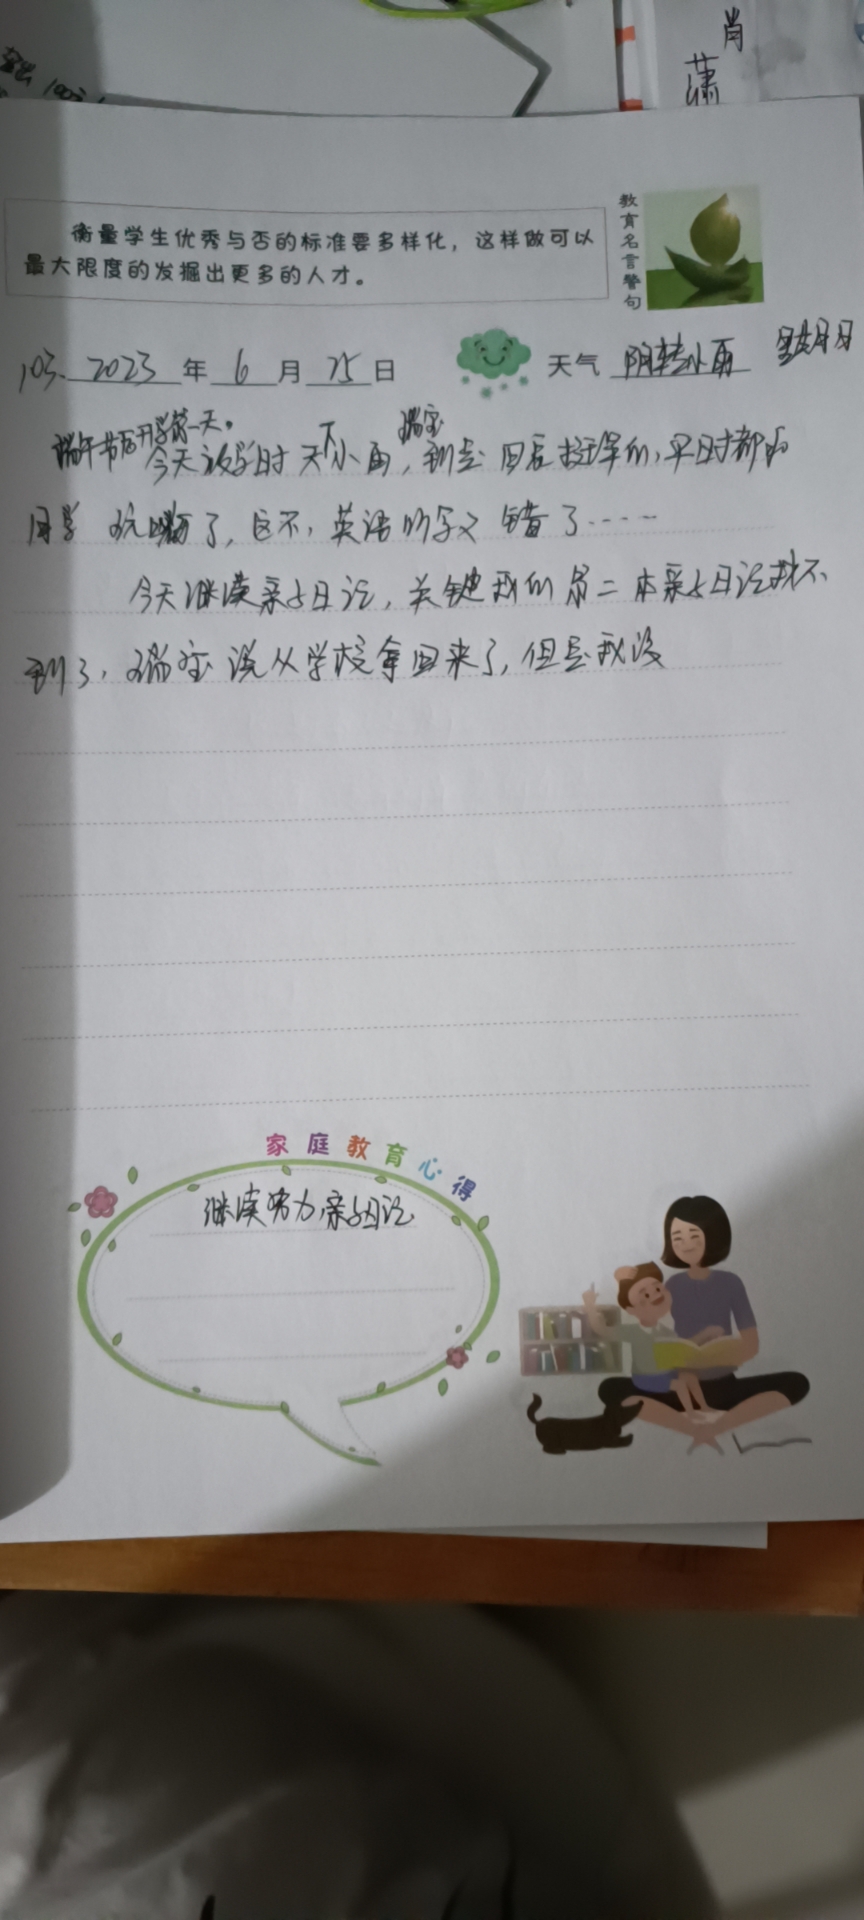 肖
潇
衡量学生优秀与否的标准要多样化，这样做可以
最大限度的发掘出更多的人才。
教育名言警句
103. 2023年6月25日 天气 阴转小雨 星期日
端午节后开学第一天。
今天放学时天下小雨，瑞宝到是回家挺早的，平时都和
同学玩嗨了，这不，英语听写又错了……
今天继续亲子日记，关键我们第二本亲子日记找不
到了，瑞宝说从学校拿回来了，但是我没
家庭教育心得
继续努力亲子日记